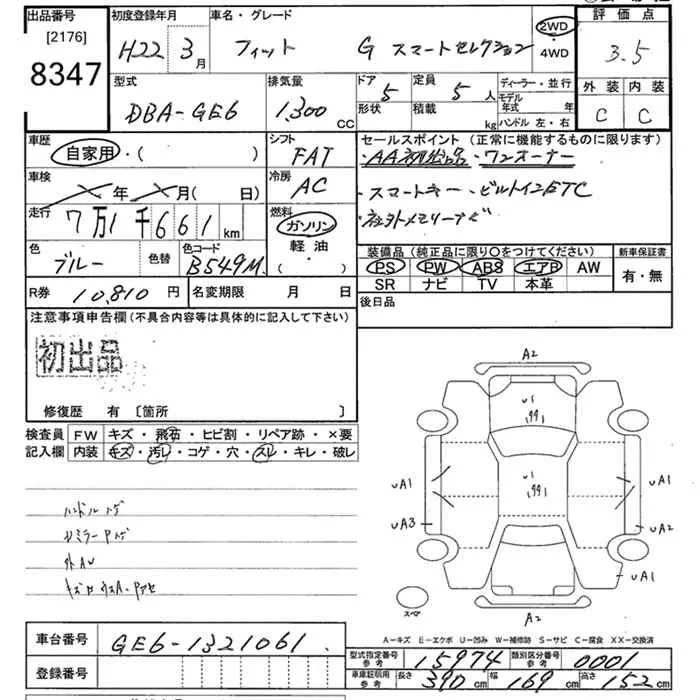 出品番号 初度登録年月 車名・グレード 評価点
[2176]
8347
H22 3月 フィット G スマートセレクション 2WD・4WD 3.5
型式 排気量 ドア 5 定員 5人 ディーラー・並行 外装 内装
DBA-GE6 1,300 CC 形状 積載 kg モデル年式 年 C C
ハンドル 左・右
車歴 シフト セールスポイント (正常に機能するものに限ります)
自家用・( ) FAT ・AA初出品・ワンオーナー
車検 冷房 ・スマートキー・ビルトインETC
年 月( 日) AC ・社外メモリーナビ
走行 燃料
7万1千661km ガソリン
色 色替 色コード 軽油 装備品 (純正品に限り○をつけてください) 新車保証書
ブルー B549M ( ・ ) PS PW ABS エアB AW 有・無
SR ナビ TV 本革
R券 10,810円 名変期限 月 日 後日品
注意事項申告欄 (不具合内容等は具体的に記入して下さい)
初出品
修復歴 有 [箇所 ]
検査員 FW キズ・飛石・ヒビ割・リペア跡・×要
記入欄 内装 キズ・汚レ・コゲ・穴・スレ・キレ・破レ
A2
U1
99
U1
99
UA1 UA1
UA3 UA2
UA1
スペア A2
ハンドル
A-キズ E-エクボ U-凹み W-補修跡 S-サビ C-腐食 XX-交換済
車台番号 GE6-1321061
型式指定番号 参考 15974 類別区分番号 参考 0001
登録番号 車庫証明用 参考 長さ 390cm 幅 169cm 高さ 152cm